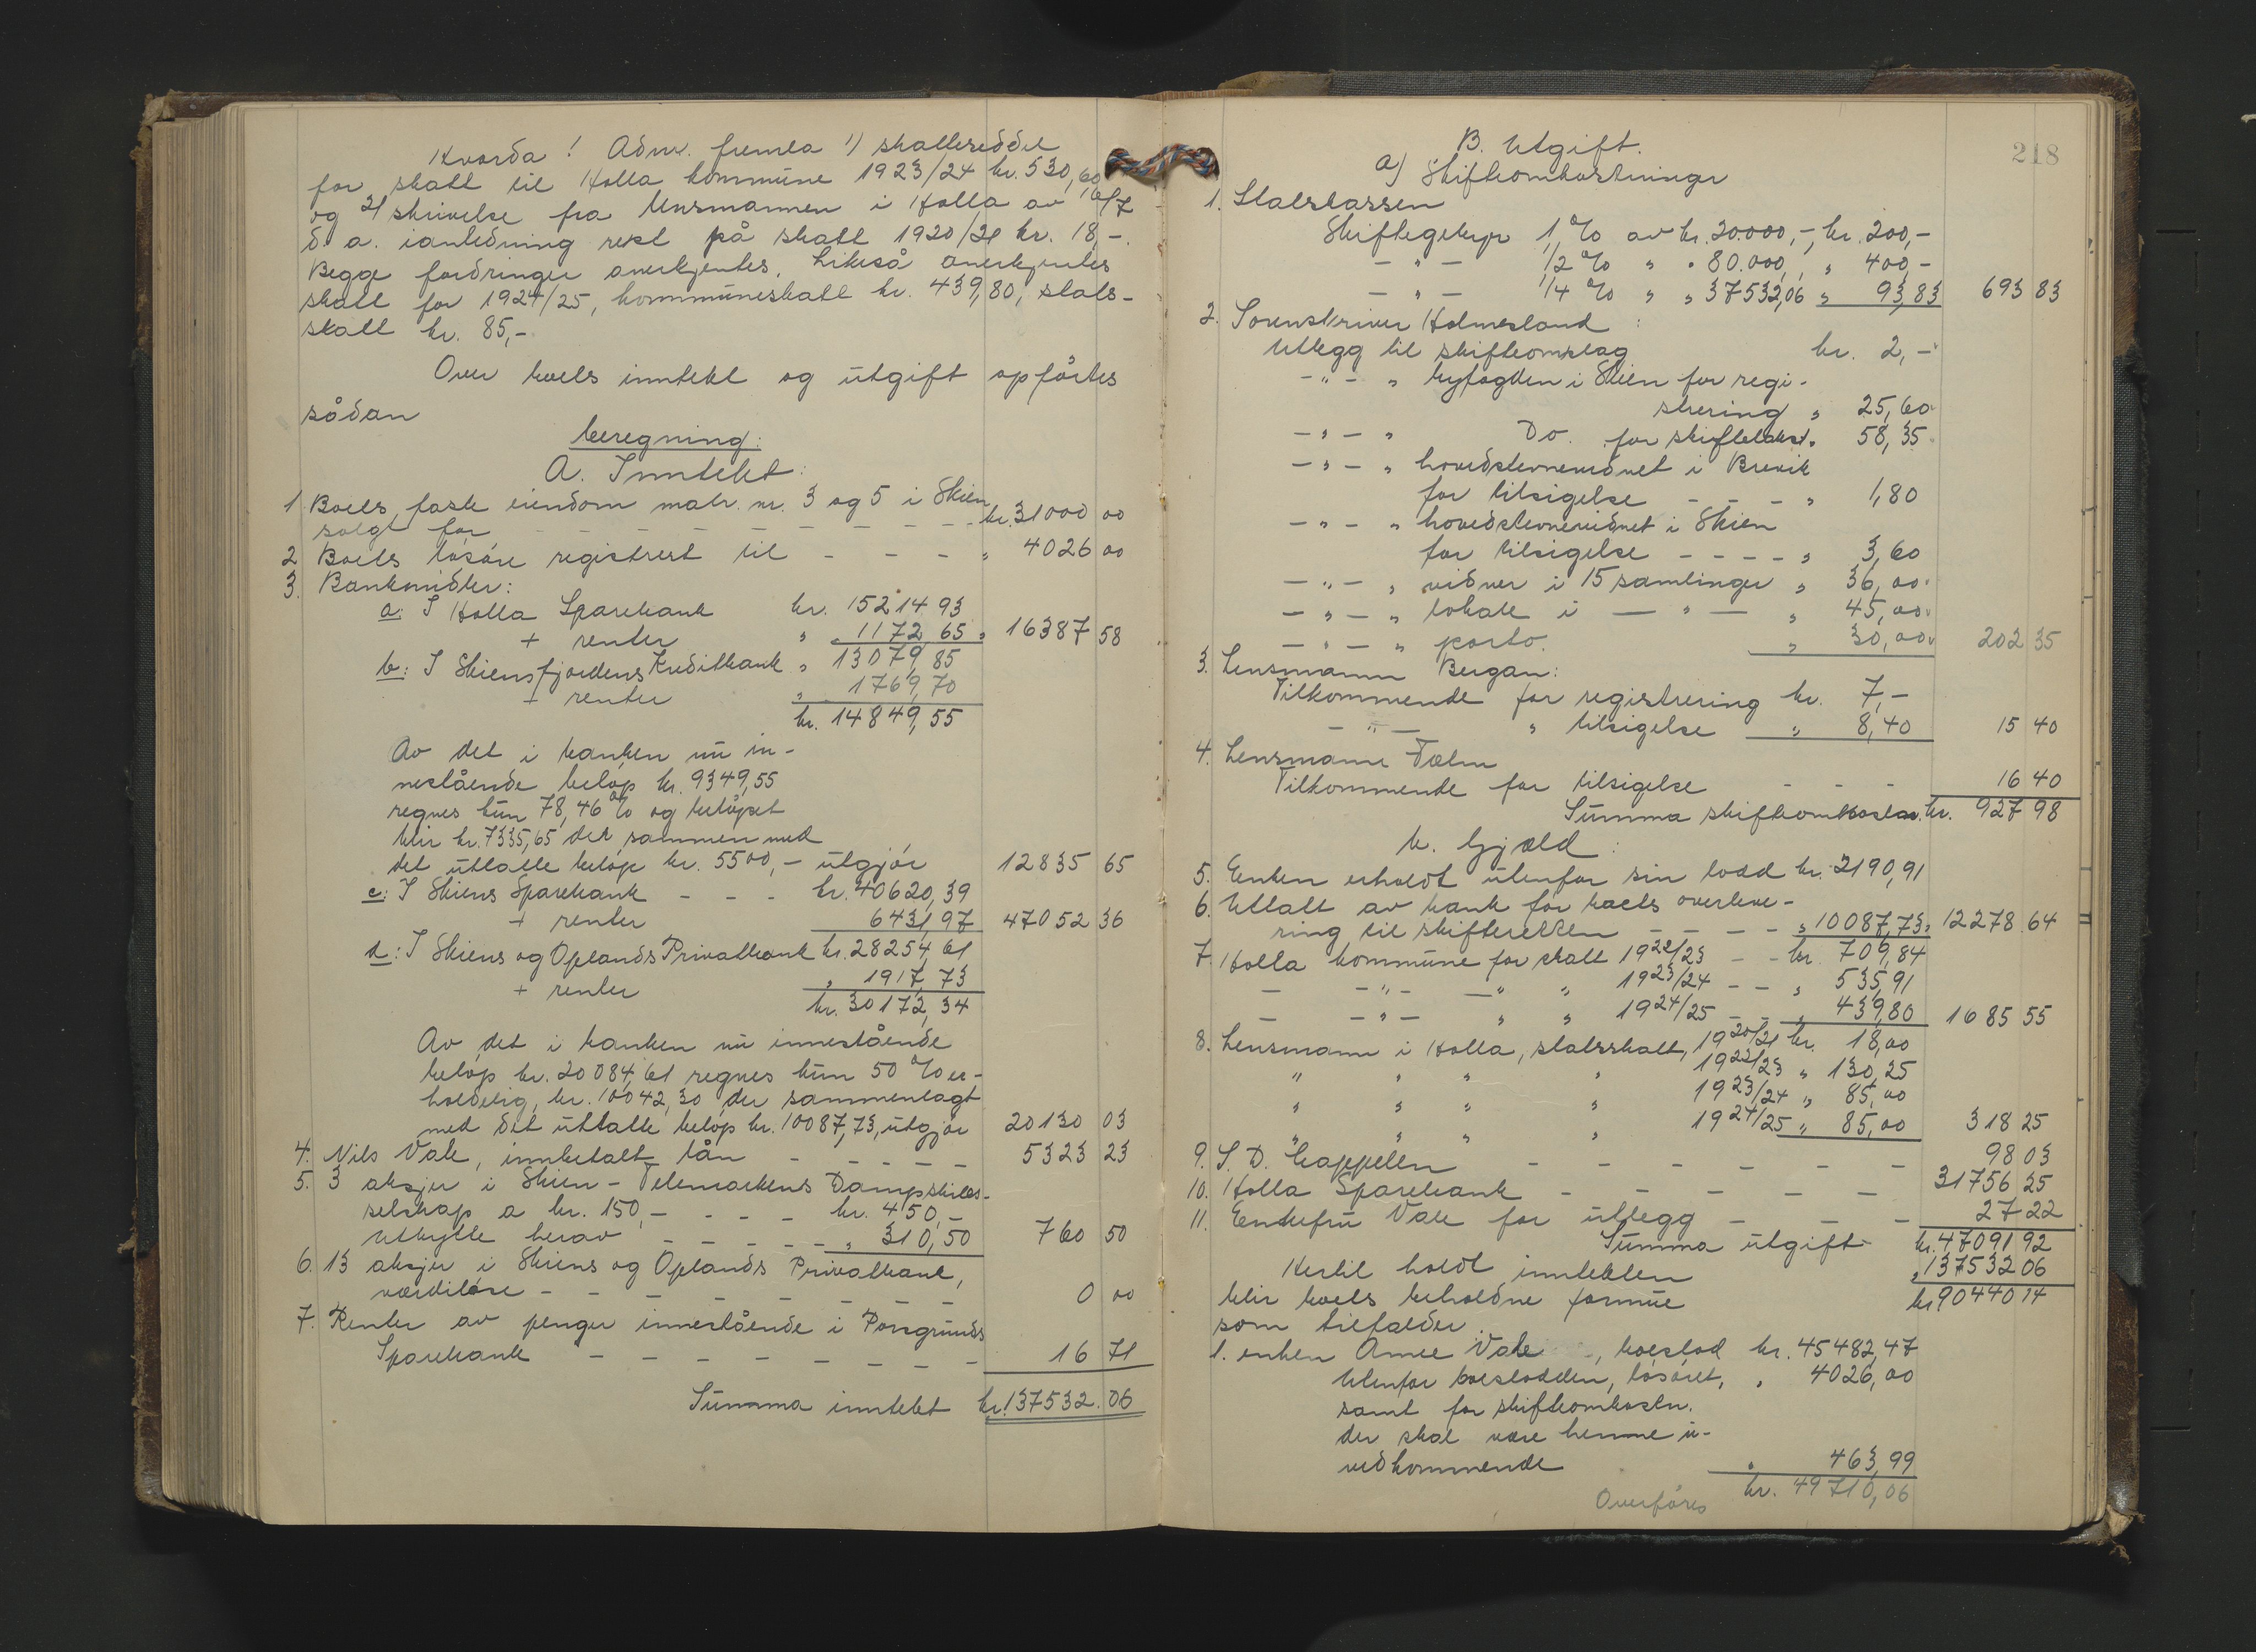 Hvorda! Adm. fremla 1) skatteseddel
for skatt til Holla kommune 1923/24 kr. 530,60
og 2) skrivelse fra lensmannen i Holla av 16/7
d. a. i anledning rest på skatt 1920/21 kr. 18,-.
Begge fordringer anerkjentes. Likeså anerkjentes
skatt for 1924/25, kommuneskatt kr. 439,80, stats-
skatt kr. 85,-
Over boets inntekt og utgift opførtes
sådan
beregning:
A. Inntekt:
1 Boets faste eiendom matr. nr. 3 og 5 i Skien
solgt for - - - - - - - - kr. 31000 00
2 Boets løsøre registrert til - - - " 4026 00
3. Bankmidler:
a: I Holla Sparebank kr. 15214 93
+ renter " 1172,65 " 16387 58
b: I Skiensfjordens Kreditbank " 13079,85
+ renter " 1769,70
kr. 14849,55
Av det i banken nu in-
nestående beløp kr. 9349,55
regnes kun 78,46 % og beløpet
blir kr. 7335,65 der sammen med
det uttatte beløp kr. 5500,- utgjør 12835 65
c: I Skiens Sparebank - - - kr. 40620,39
+ renter 6431,97 47052 36
d: I Skiens og Oplands Privatbank kr. 28254,61
+ renter " 1917,73
kr. 30172,34
Av det i banken nu innestående
beløp kr. 20084,61 regnes kun 50 % er-
holdelig, kr. 10042,30 der sammenlagt
med det uttatte beløp kr. 10087,73, utgjør 20130 03
4. Nils Vale, innbetalt lån - - - - - 5323 23
5. 3 aksjer i Skien - Telemarkens Dampskibs-
selskap a kr. 150,- - - - kr. 450,-
Utbytte herav - - - - - " 310,50 760 50
6. 13 aksjer i Skiens og Oplands Privatbank,
værdiløse - - - - - - - - 0 00
7. Renter av penger innestående i Porsgrunds
Sparebank - - - - - - - - 16 71
Summa inntekt kr. 137532.06
218
B. Utgift.
a) Skifteomkostninger
1. Statskassen
Skiftegebyr 1 % av kr. 20.000,-, kr. 200,-
- " - 1/2 % " " 80.000, " 400,-
- " - 1/4 % " " 37532,06 " 93,83 693 83
2. Sorenskriver Holmesland:
Utlegg til skifteomslag kr. 2,-
- " - " byfogden i Skien for regi-
strering " 25,60
- " - " Do. for skifteldekst. " 58,35
- " - " hovedstevnevidnet i Brevik
for tilsigelse - - - " 1,80
- " - " hovedstevnevidnet i Skien
for tilsigelse - - - - " 3,60
- " - " vidner i 15 samlinger " 36,00
- " - " lokale i - " - " 45,00
- " - " porto. " 30,00 202 35
3. Lensmann Bergan:
Tilkommende for registrering kr. 7,-
- " - " tilsigelse " 8,40 15 40
4. Lensmann Tælm
Tilkommende for tilsigelse - - - 16 40
Summa skifteomkostn. kr. 927 98
b. Gjæld:
5. Enken erholdt utenfor sin lodd kr. 2190,91
6. Uttatt av bank før boets overleve-
ring til skifteretten - - - - " 10087,73 " 12278.64
7. Holla kommune for skatt 1922/23 - - kr. 709,84
- - " - - " " 1923/24 - - " 535,91
- - " - " " 1924/25 - - " 439,80 1685 55
8. Lensmann i Holla, statsskatt, 1920/21 kr. 18,00
" " " " 1922/23 " 130,25
" " " " 1923/24 " 85,00
" " " " 1924/25 " 85,00 318 25
9. S. D. Cappelen - - - - - - 98 03
10. Holla Sparebank - - - - - 31756 25
11. Enkefru Vale for utlegg - - - 27 22
Summa utgift kr. 47091 92
Hertil holdt inntekten " 137532 06
blir boets beholdne formue kr. 90440 14
som tilfalder
1. enken Anne Vale, boeslod kr. 45482,47
Utenfor boeslodden, løsøret, " 4026,00
samt for skifteomkostn.
der skal være henne u-
vedkommende " 463,99
Overføres kr. 49710,06